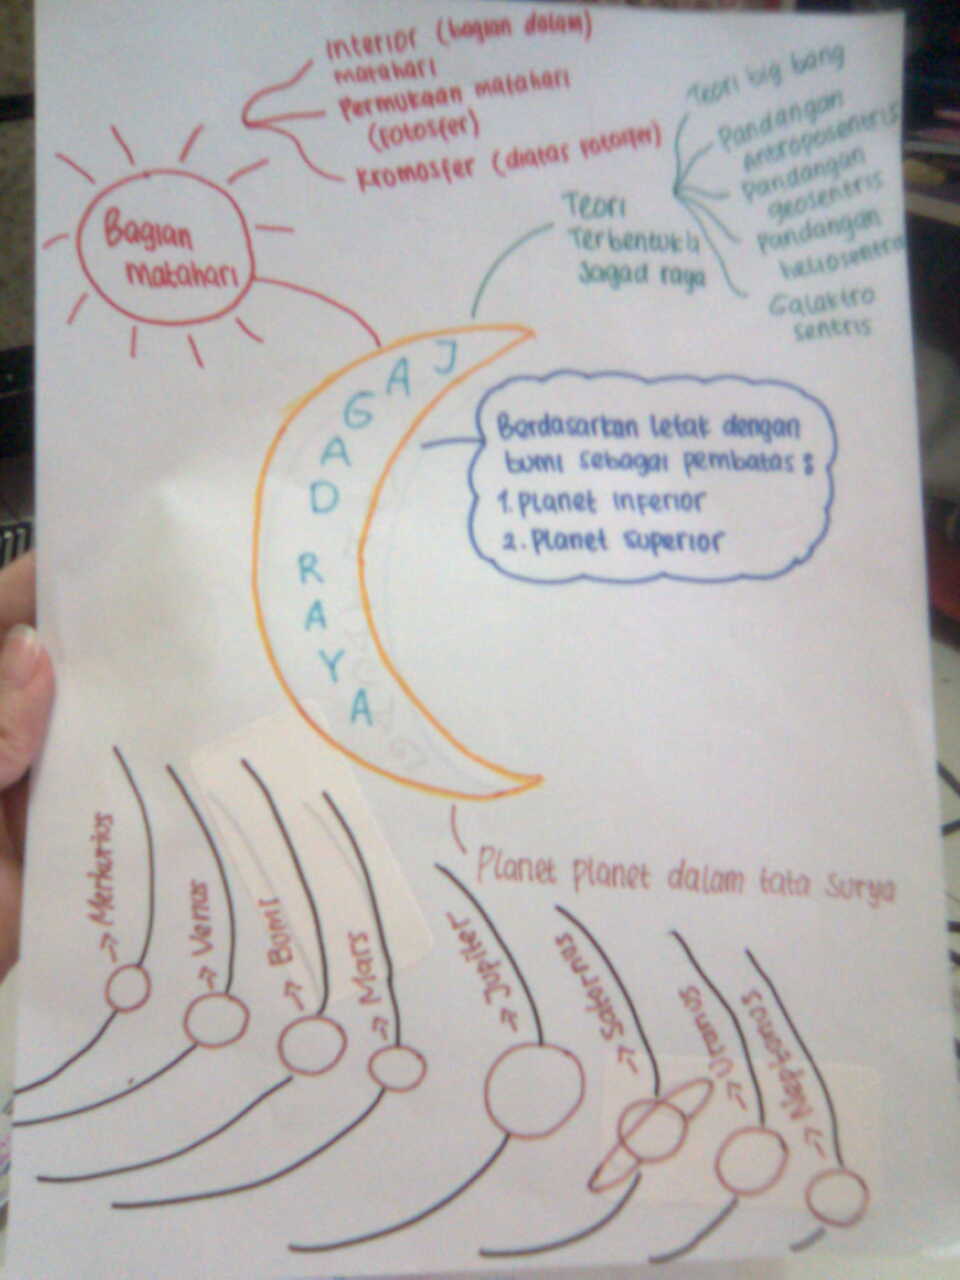 Interior (bagian dalam)
matahari
Permukaan matahari
(fotosfer)
Kromosfer (diatas fotosfer)
Bagian
matahari
Teori
Terbentuk
Jagad raya
Teori big bang
Pandangan
Antroposentris
Pandangan
geosentris
Pandangan
heliosentris
Galaktro
sentris
JAGAD RAYA
Berdasarkan letak dengan
bumi sebagai pembatas :
1. Planet Inferior
2. Planet superior
Planet planet dalam tata surya
→ Merkurius
→ Venus
→ Bumi
→ Mars
→ Jupiter
→ Saturnus
→ Uranus
→ Neptunus